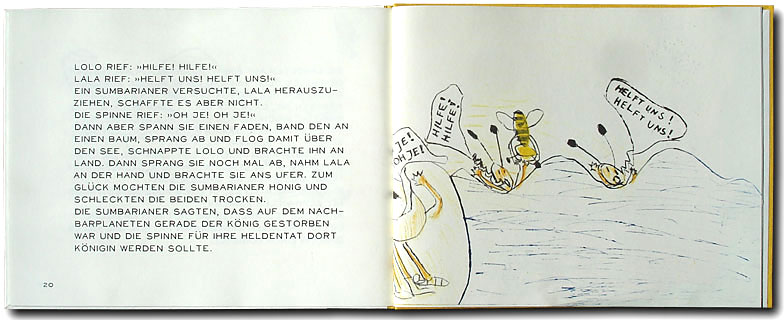 LOLO RIEF: »HILFE! HILFE!«
LALA RIEF: »HELFT UNS! HELFT UNS!«
EIN SUMBARIANER VERSUCHTE, LALA HERAUSZU-
ZIEHEN, SCHAFFTE ES ABER NICHT.
DIE SPINNE RIEF: »OH JE! OH JE!«
DANN ABER SPANN SIE EINEN FADEN, BAND DEN AN
EINEN BAUM, SPRANG AB UND FLOG DAMIT ÜBER
DEN SEE, SCHNAPPTE LOLO UND BRACHTE IHN AN
LAND. DANN SPRANG SIE NOCH MAL AB, NAHM LALA
AN DER HAND UND BRACHTE SIE ANS UFER. ZUM
GLÜCK MOCHTEN DIE SUMBARIANER HONIG UND
SCHLECKTEN DIE BEIDEN TROCKEN.
DIE SUMBARIANER SAGTEN, DASS AUF DEM NACH-
BARPLANETEN GERADE DER KÖNIG GESTORBEN
WAR UND DIE SPINNE FÜR IHRE HELDENTAT DORT
KÖNIGIN WERDEN SOLLTE.
20
JE!
OH JE!
HILFE!
HILFE!
HELFT UNS!
HELFT UNS!